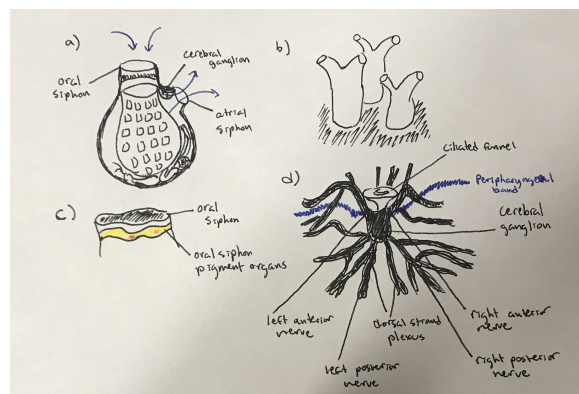 a)
oral
siphon
cerebral
ganglion
atrial
siphon
b)
c)
oral
siphon
oral siphon
pigment organs
d)
ciliated funnel
Peripharyngeal
band
cerebral
ganglion
left anterior
nerve
left posterior
nerve
dorsal strand
plexus
right anterior
nerve
right posterior
nerve